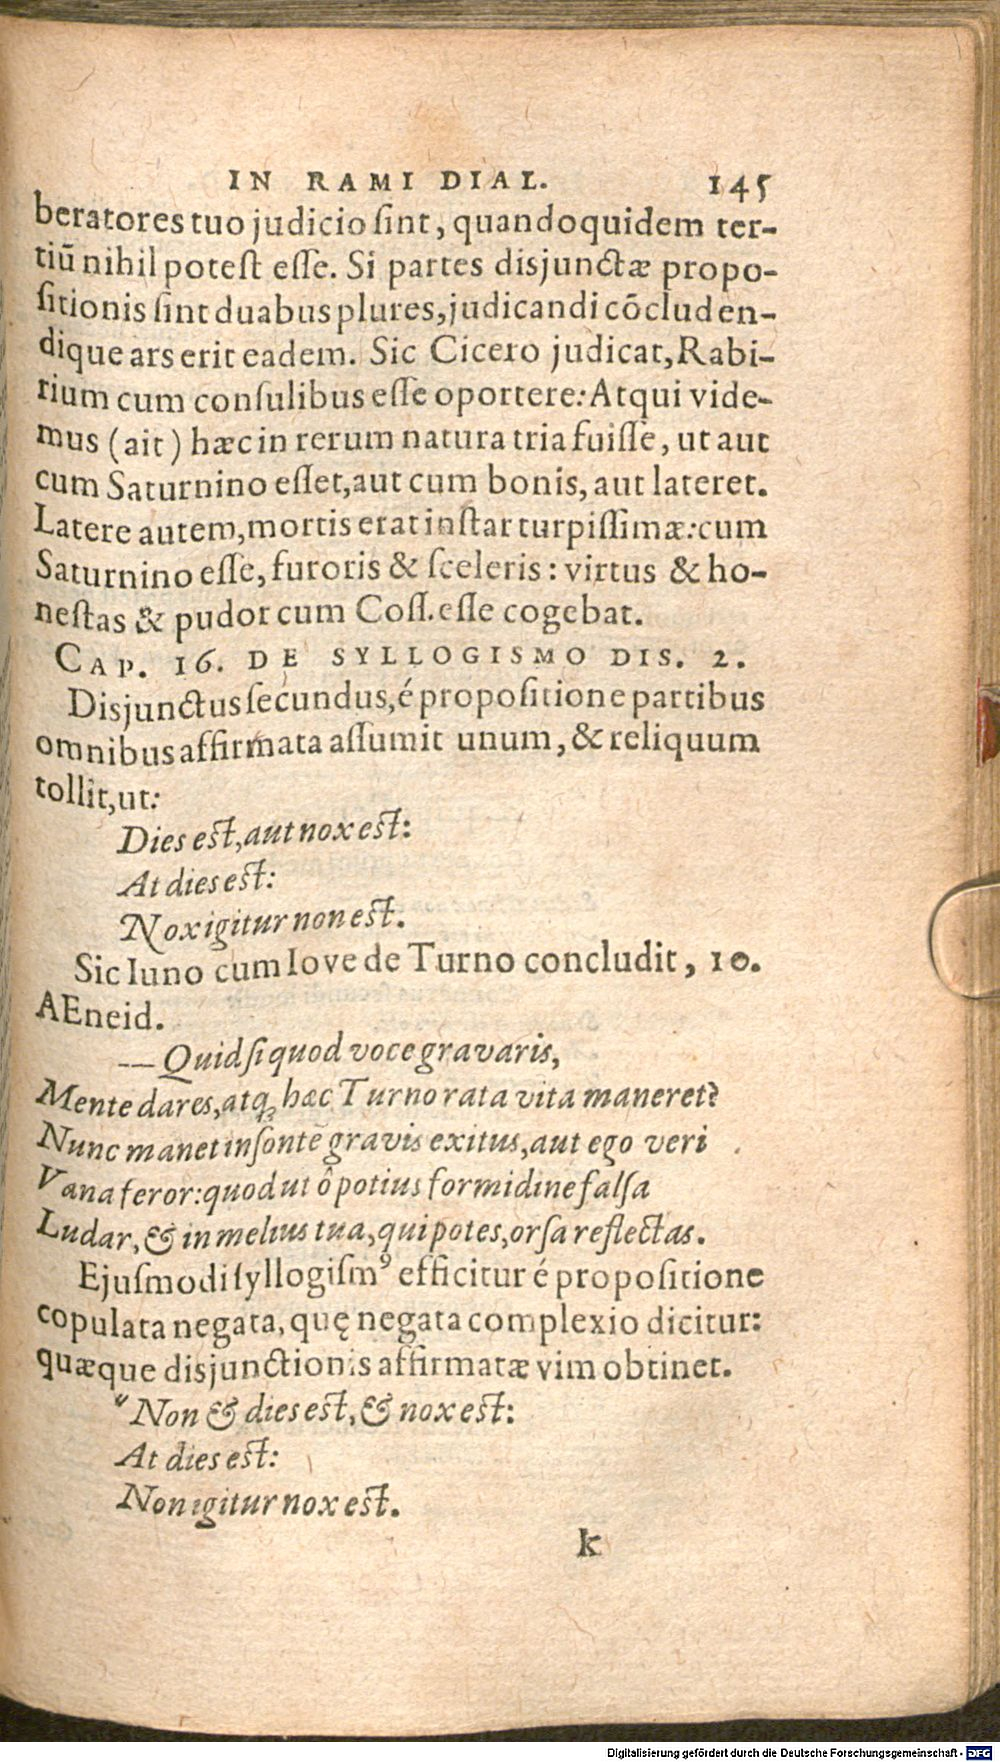 IN RAMI DIAL. 145
beratores tuo judicio ſint, quandoquidem ter-
tiū nihil poteſt eſſe. Si partes disjunctæ propo-
ſitionis ſint duabus plures, judicandi cōcluden-
dique ars erit eadem. Sic Cicero judicat, Rabi-
rium cum conſulibus eſſe oportere: Atqui vide-
mus (ait) hæc in rerum natura tria fuiſſe, ut aut
cum Saturnino eſſet, aut cum bonis, aut lateret.
Latere autem, mortis erat inſtar turpiſſimæ: cum
Saturnino eſſe, furoris & ſceleris: virtus & ho-
neſtas & pudor cum Coſſ. eſſe cogebat.
CAP. 16. DE SYLLOGISMO DIS. 2.
Disjunctus ſecundus, é propoſitione partibus
omnibus affirmata aſſumit unum, & reliquum
tollit, ut:
Dies eſt, aut nox eſt:
At dies eſt:
Nox igitur non eſt.
Sic Iuno cum Iove de Turno concludit, 10.
AEneid.
— Quid ſi quod voce gravaris,
Mente dares, atq; hæc Turno rata vita maneret?
Nunc manet inſontē gravis exitus, aut ego veri
Vana feror: quod ut ô potius formidine falſa
Ludar, & in melius tua, qui potes, orſa reflectas.
Ejuſmodi ſyllogiſmꝰ efficitur é propoſitione
copulata negata, quę negata complexio dicitur:
quæque disjunctionis affirmatæ vim obtinet.
"Non & dies eſt, & nox eſt:
At dies eſt:
Non igitur nox eſt.
k
Digitalisierung gefördert durch die Deutsche Forschungsgemeinschaft - DFG